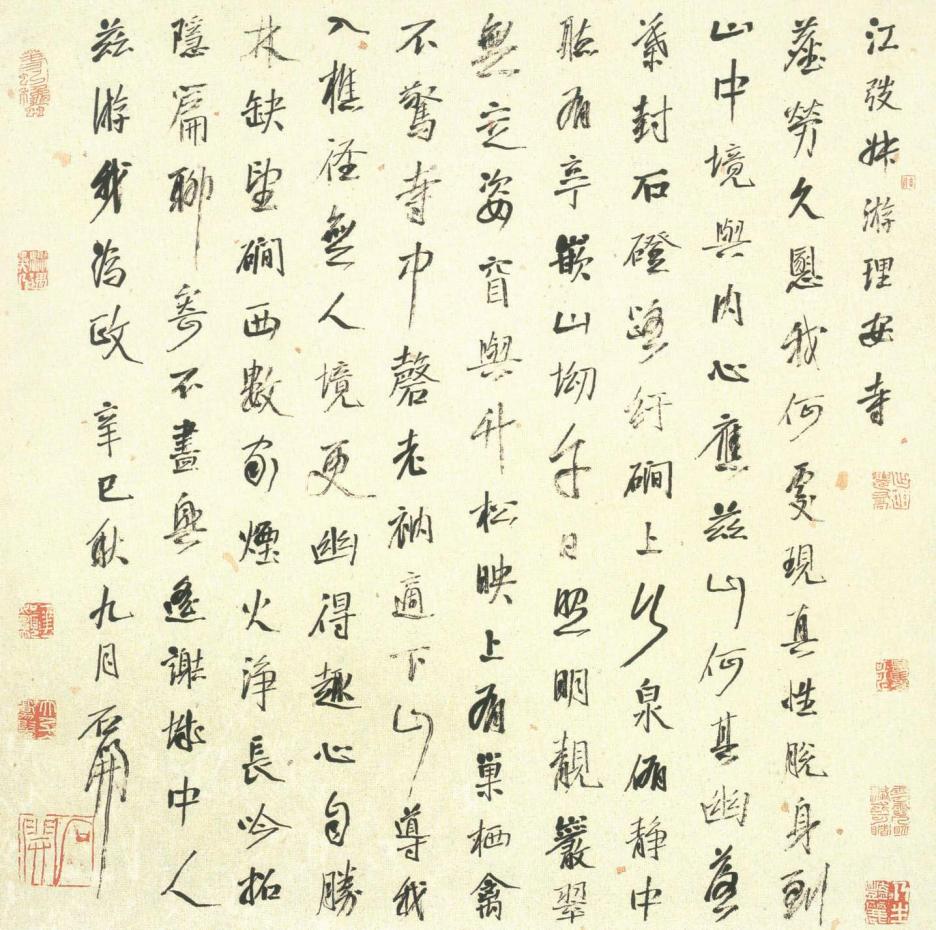 江弢叔游理安寺
塵勞久慁我何處現真性脫身到
山中境與內心應茲山何其幽落
葉封石磴路紆磵上行泉靜中
聽有亭嵌山坳午日照明靚巖翠
無定姿窅與升松映上有巢栖禽
不驚寺中磬老衲適下山導我
入樵徑無人境更幽得趣心自勝
林缺望磵西數家煙火淨長吟招
隱篇聊寄不盡興遙謝城中人
茲游我為政 辛巳秋九月 石開
石開